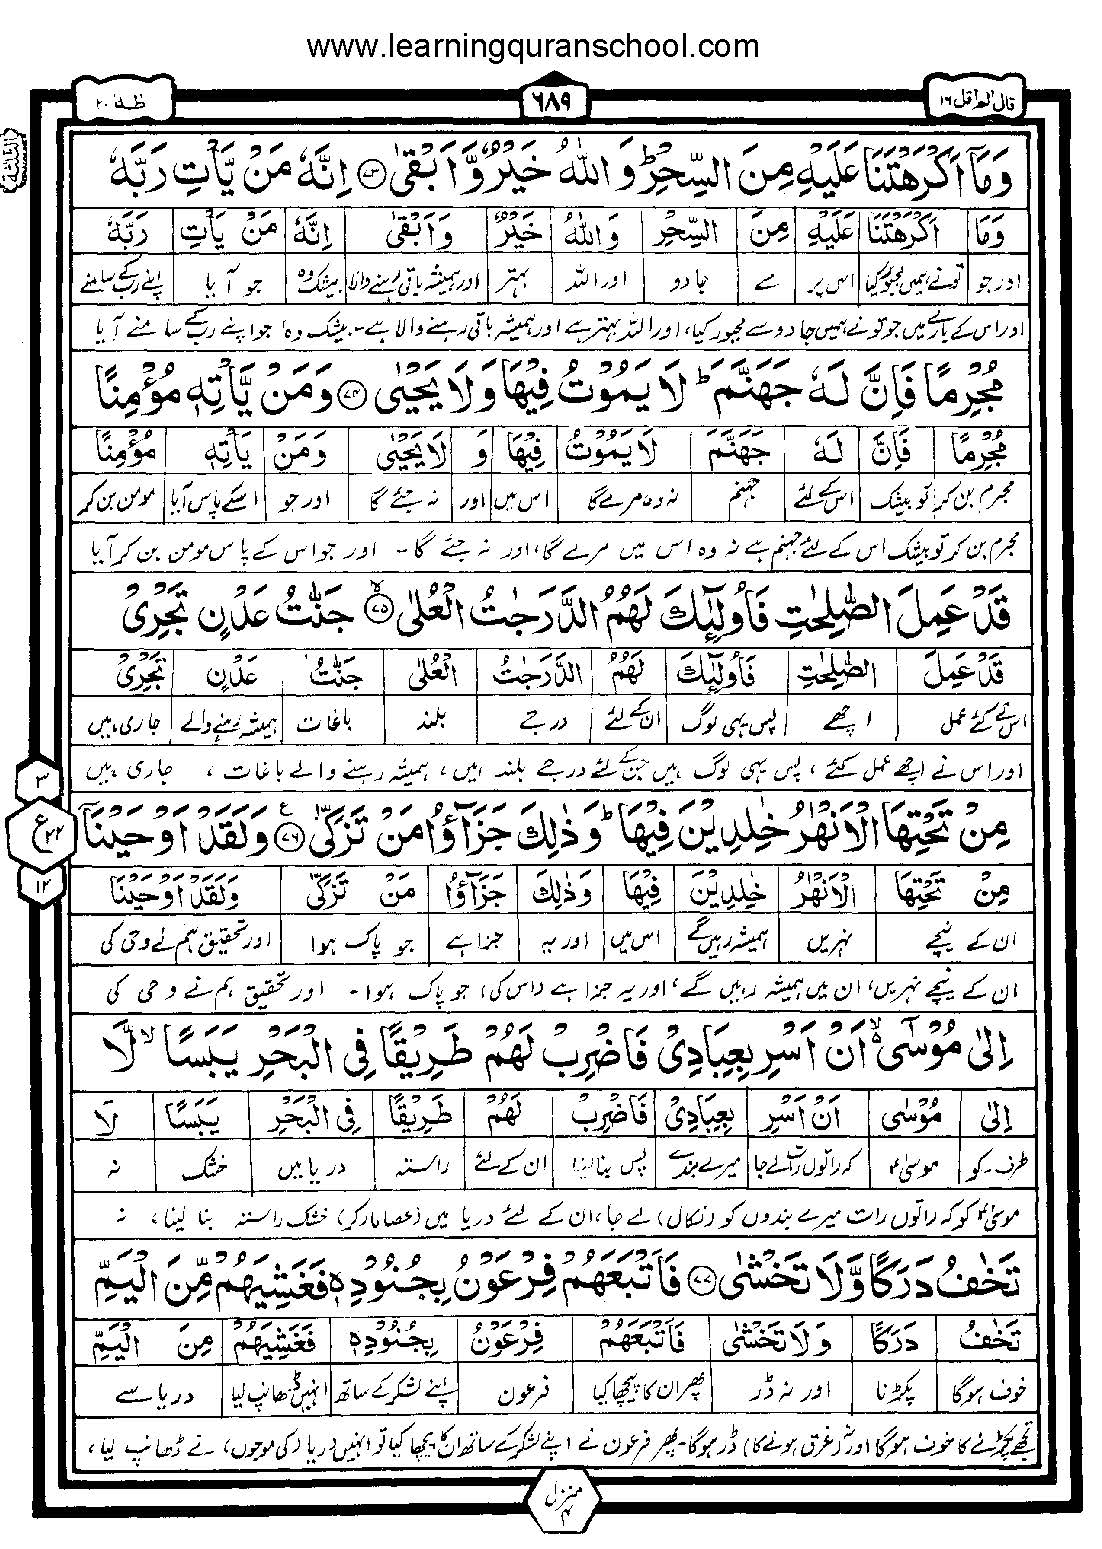 www.learningquranschool.com
قال الم اقل ١٦
٦٨٩
طٰهٰ ٢٠
الثلثة
وَمَاۤ اَكْرَهْتَنَا عَلَيْهِ مِنَ السِّحْرِ ؕ وَاللّٰهُ خَيْرٌ وَّاَبْقٰى ﴿۷۳﴾ اِنَّهٗ مَنْ يَّاْتِ رَبَّهٗ
وَمَا اَكْرَهْتَنَا عَلَيْهِ مِنَ السِّحْرِ وَاللّٰهُ خَيْرٌ وَاَبْقٰى اِنَّهٗ مَنْ يَاْتِ رَبَّهٗ
اور جو تونے ہمیں مجبور کیا اس پر سے جادو اور اللہ بہتر اور ہمیشہ باقی رہنے والا بیشک وہ جو آیا اپنے رب کے سامنے
اور اس کے بارے میں جو تو نے ہمیں جادو سے مجبور کیا، اور اللہ بہتر ہے اور ہمیشہ باقی رہنے والا ہے۔ بیشک وہ جو اپنے رب کے سامنے آیا
مُجْرِمًا فَاِنَّ لَهٗ جَهَنَّمَ ؕ لَا يَمُوْتُ فِيْهَا وَلَا يَحْيٰى ﴿۷۴﴾ وَمَنْ يَّاْتِهٖ مُؤْمِنًا
مُجْرِمًا فَاِنَّ لَهٗ جَهَنَّمَ لَا يَمُوْتُ فِيْهَا وَ لَا يَحْيٰى وَمَنْ يَاْتِهٖ مُؤْمِنًا
مجرم بن کر تو بیشک اس کے لئے جہنم نہ وہ مرے گا اس میں اور نہ جئے گا اور جو اسکے پاس آیا مومن بن کر
مجرم بن کر تو بیشک اس کے لئے جہنم ہے نہ وہ اس میں مرے گا، اور نہ جئے گا۔ اور جو اس کے پاس مومن بن کر آیا
قَدْ عَمِلَ الصّٰلِحٰتِ فَاُولٰٓئِكَ لَهُمُ الدَّرَجٰتُ الْعُلٰى ﴿۷۵﴾ جَنّٰتُ عَدْنٍ تَجْرِيْ
قَدْ عَمِلَ الصّٰلِحٰتِ فَاُولٰٓئِكَ لَهُمُ الدَّرَجٰتُ الْعُلٰى جَنّٰتُ عَدْنٍ تَجْرِيْ
اس نے کئے عمل اچھے پس یہی لوگ ان کے لئے درجے بلند باغات ہمیشہ رہنے والے جاری ہیں
اور اس نے اچھے عمل کئے، پس یہی لوگ ہیں جن کے لئے درجے بلند ہیں، ہمیشہ رہنے والے باغات، جاری ہیں
٣
ع ٢٢
١٢
مِنْ تَحْتِهَا الْاَنْهٰرُ خٰلِدِيْنَ فِيْهَا ؕ وَذٰلِكَ جَزٰٓؤُا مَنْ تَزَكّٰى ﴿۷۶﴾ وَلَقَدْ اَوْحَيْنَاۤ
مِنْ تَحْتِهَا الْاَنْهٰرُ خٰلِدِيْنَ فِيْهَا وَذٰلِكَ جَزٰٓؤُا مَنْ تَزَكّٰى وَلَقَدْ اَوْحَيْنَا
ان کے نیچے نہریں ہمیشہ رہیں گے اس میں اور یہ جزا ہے جو پاک ہوا اور تحقیق ہم نے وحی کی
ان کے نیچے نہریں، ان میں ہمیشہ رہیں گے، اور یہ جزا ہے (اس کی) جو پاک ہوا۔ اور تحقیق ہم نے وحی کی
اِلٰى مُوْسٰۤى اَنْ اَسْرِ بِعِبَادِيْ فَاضْرِبْ لَهُمْ طَرِيْقًا فِي الْبَحْرِ يَبَسًا ۙ لَّا
اِلٰى مُوْسٰى اَنْ اَسْرِ بِعِبَادِيْ فَاضْرِبْ لَهُمْ طَرِيْقًا فِي الْبَحْرِ يَبَسًا لَا
طرف۔ کو موسیٰؑ کہ راتوں رات لے جا میرے بندے پس بنا لینا ان کے لئے راستہ دریا میں خشک نہ
موسیٰؑ کو کہ راتوں رات میرے بندوں کو (نکال) لے جا، ان کے لئے دریا میں (عصا مار کر) خشک راستہ بنا لینا، نہ
تَخٰفُ دَرَكًا وَّلَا تَخْشٰى ﴿۷۷﴾ فَاَتْبَعَهُمْ فِرْعَوْنُ بِجُنُوْدِهٖ فَغَشِيَهُمْ مِّنَ الْيَمِّ
تَخٰفُ دَرَكًا وَلَا تَخْشٰى فَاَتْبَعَهُمْ فِرْعَوْنُ بِجُنُوْدِهٖ فَغَشِيَهُمْ مِنَ الْيَمِّ
خوف ہوگا پکڑنا اور نہ ڈر پھر ان کا پیچھا کیا فرعون اپنے لشکر کے ساتھ انہیں ڈھانپ لیا دریا سے
تجھے پکڑنے کا خوف ہوگا اور نہ (غرق ہونے کا) ڈر ہوگا۔ پھر فرعون نے اپنے لشکر کے ساتھ ان کا پیچھا کیا تو انہیں دریا (کی موجوں) نے ڈھانپ لیا،
منزل ٤